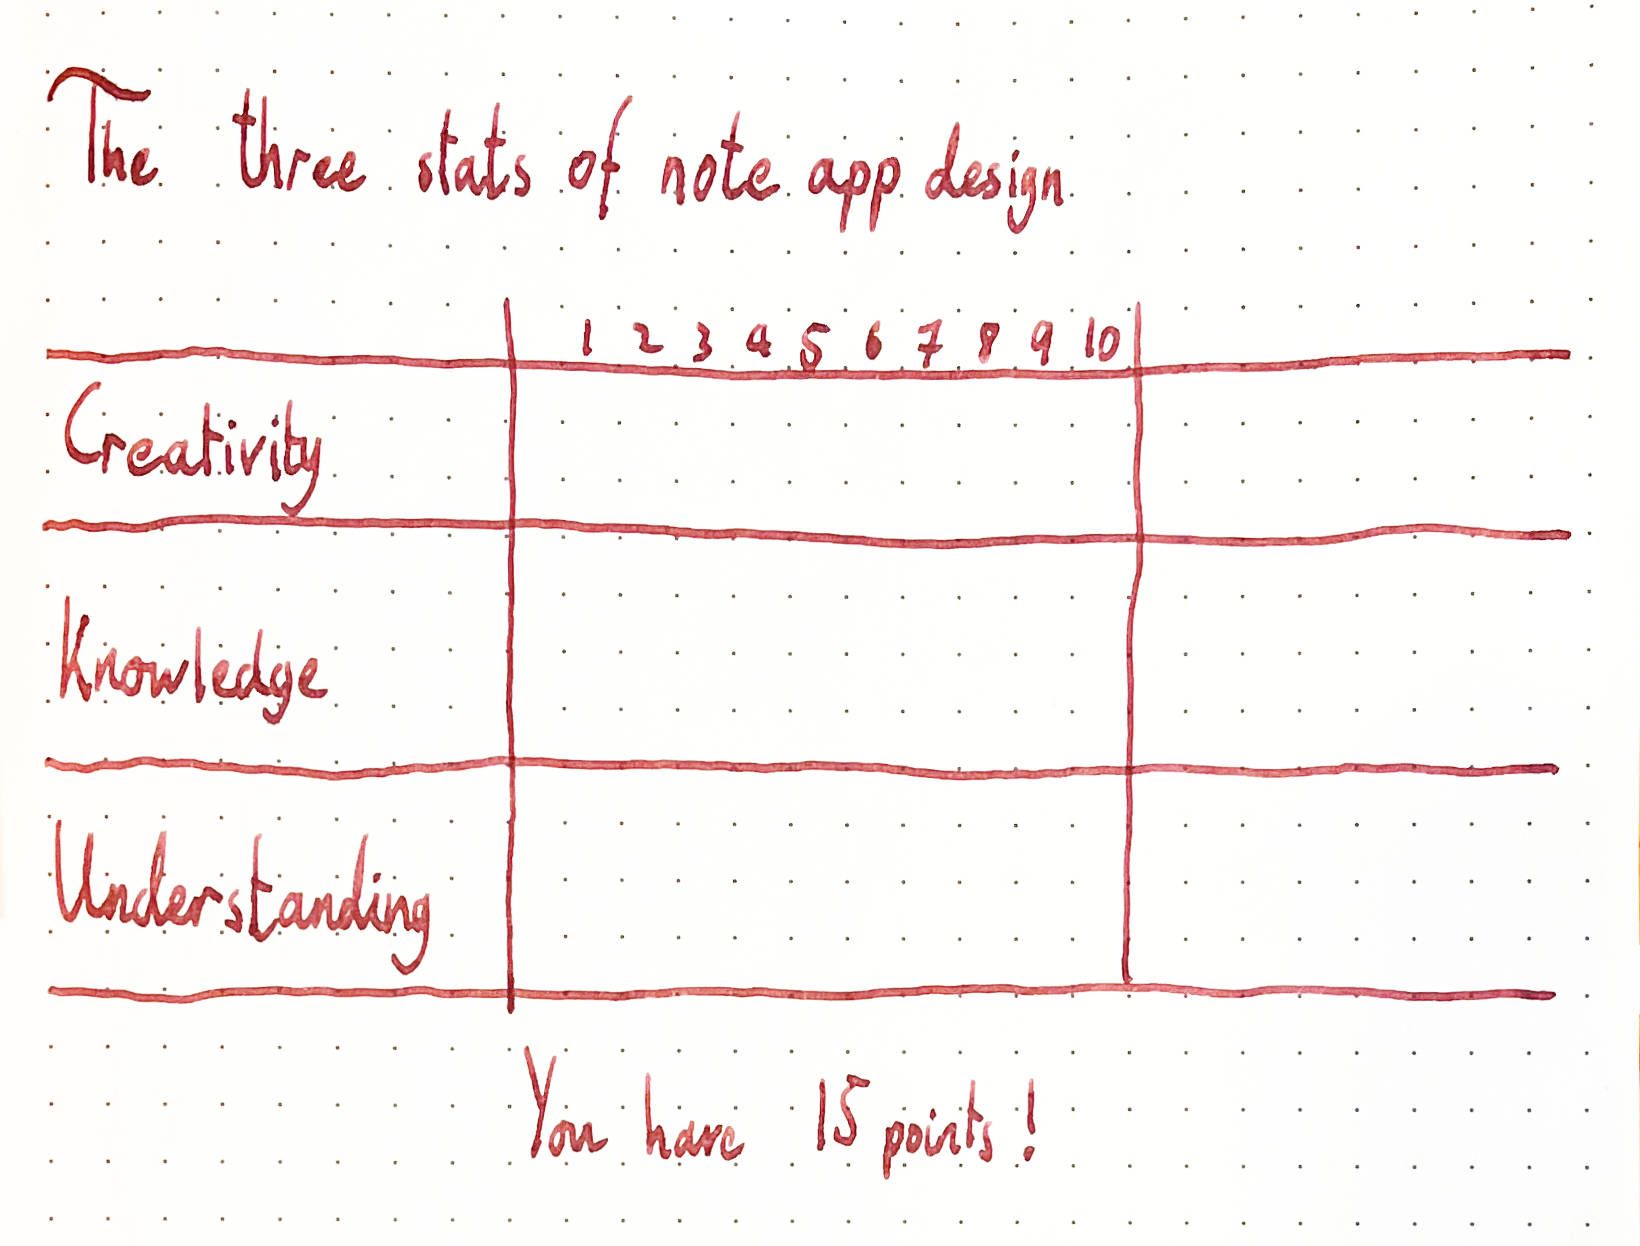 The three stats of note app design
1 2 3 4 5 6 7 8 9 10
Creativity
Knowledge
Understanding
You have 15 points!